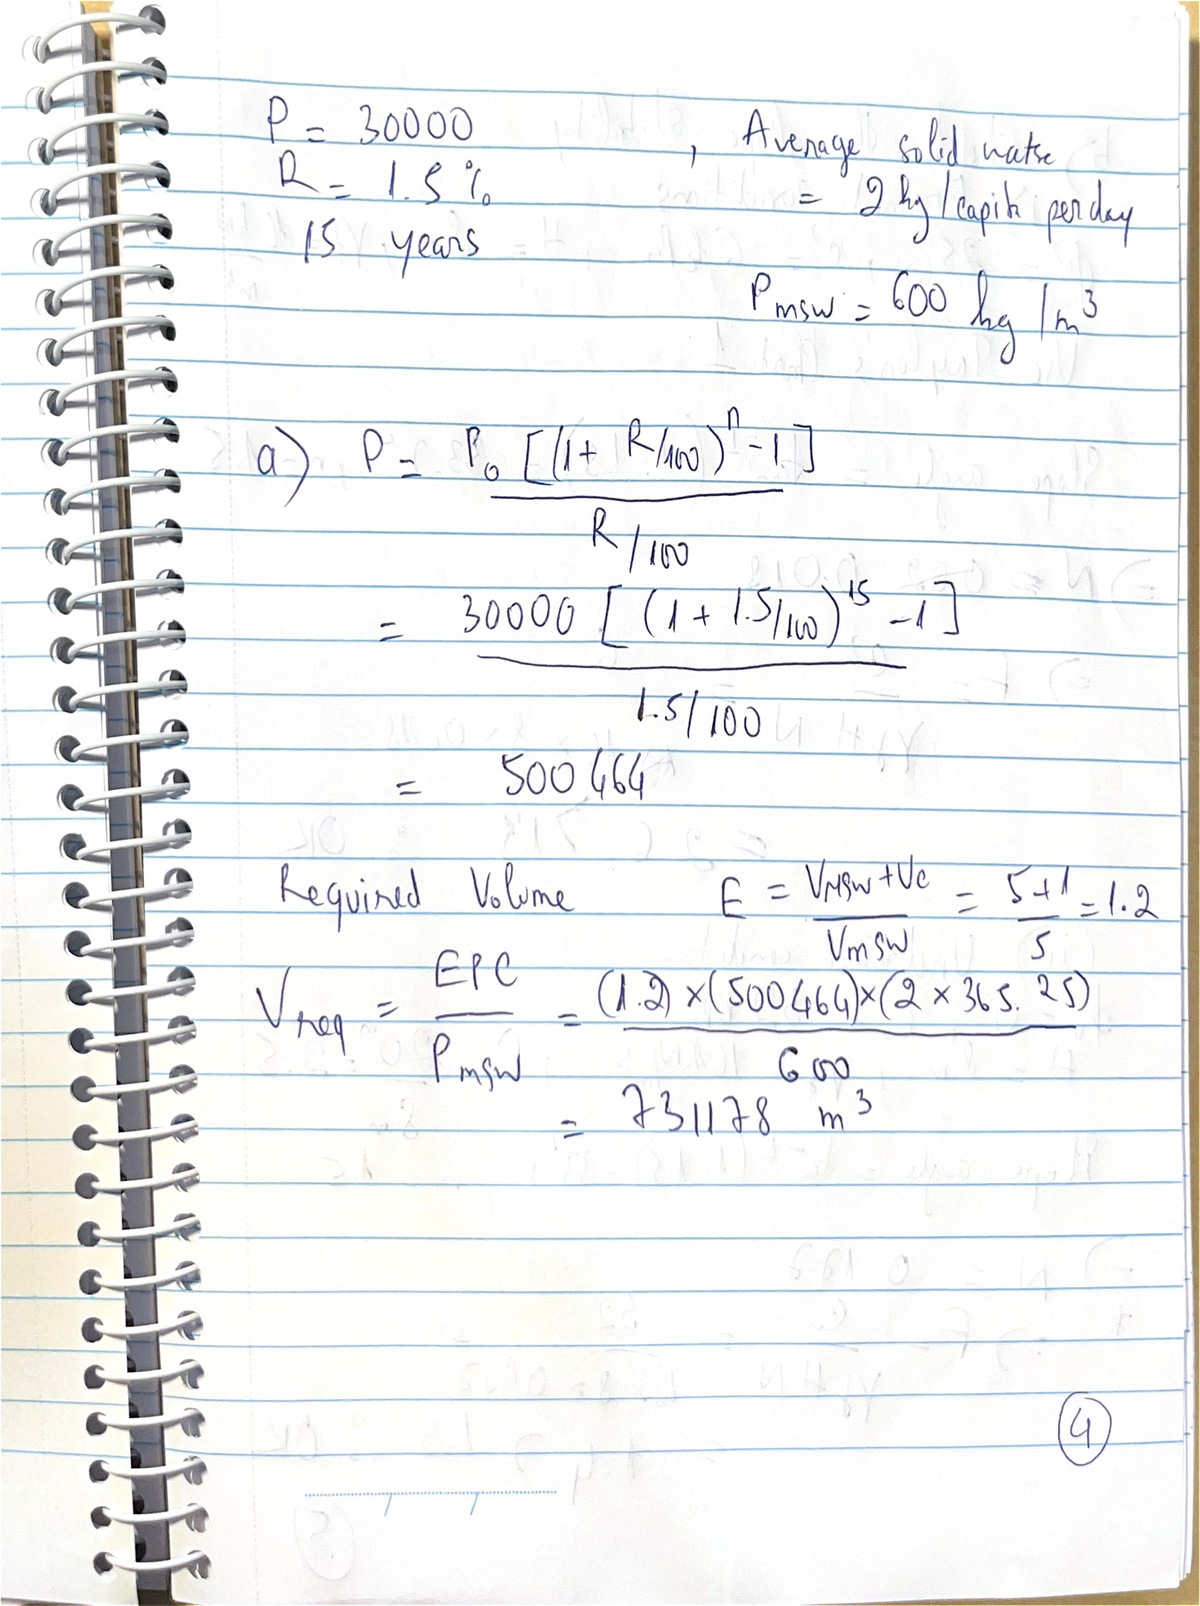 P = 30000
R = 1.5 %
15 years
, Average solid watse
= 2 kg / capita per day
Pmsw = 600 kg / m³
a) P = P₀ [(1 + R/100)ⁿ - 1]
R / 100
= 30000 [ (1 + 1.5/100)¹⁵ - 1 ]
1.5 / 100
= 500 464
Required Volume E = VMSW + Vc = 5 + 1 = 1.2
Vmsw 5
Vreq = EPC = (1.2) × (500464) × (2 × 365.25)
Pmsw 600
= 731178 m³
4